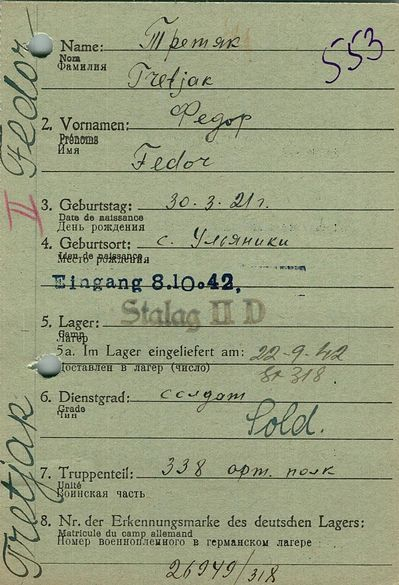 553
II Fedor
Tretjak
Name: Третяк
Nom
Фамилия Tretjak
2. Vornamen: Федор
Prénoms
Имя Fedor
3. Geburtstag: 30.3.21 г.
Date de naissance
День рождения
4. Geburtsort: с. Ульяники
Lieu de naissance
Место рождения
Eingang 8.10.42,
5. Lager: Stalag II D
Camp
Лагерь
5a. Im Lager eingeliefert am: 22-9-42
Доставлен в лагер (число) St 318
6. Dienstgrad: солдат
Grade
Чин Sold.
7. Truppenteil: 338 арт. полк
Unité
Воинская часть
8. Nr. der Erkennungsmarke des deutschen Lagers:
Matricule du camp allemand
Номер военнопленного в германском лагере
26949/318